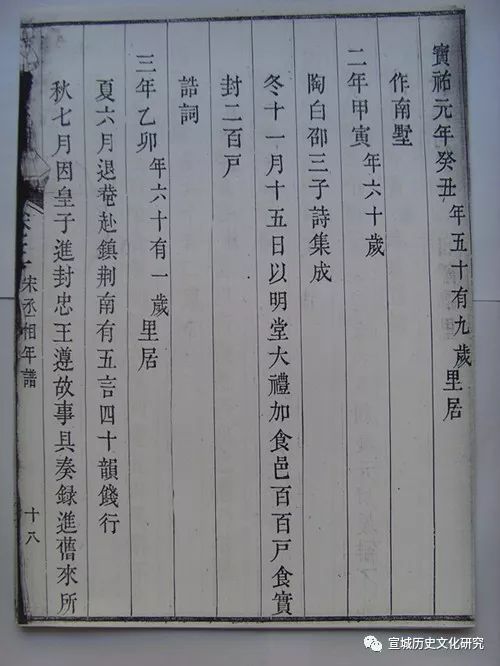 寶祐元年癸丑年五十有九歲里居
作南墅
二年甲寅年六十歲
陶白邵三子詩集成
冬十一月十五日以明堂大禮加食邑百百戶食實
封二百戶
誥詞
三年乙卯年六十有一歲里居
夏六月退菴赴鎮荆南有五言四十韻餞行
秋七月因皇子進封忠王遵故事具奏録進舊來所
宋丞相年譜
十八
宣城历史文化研究